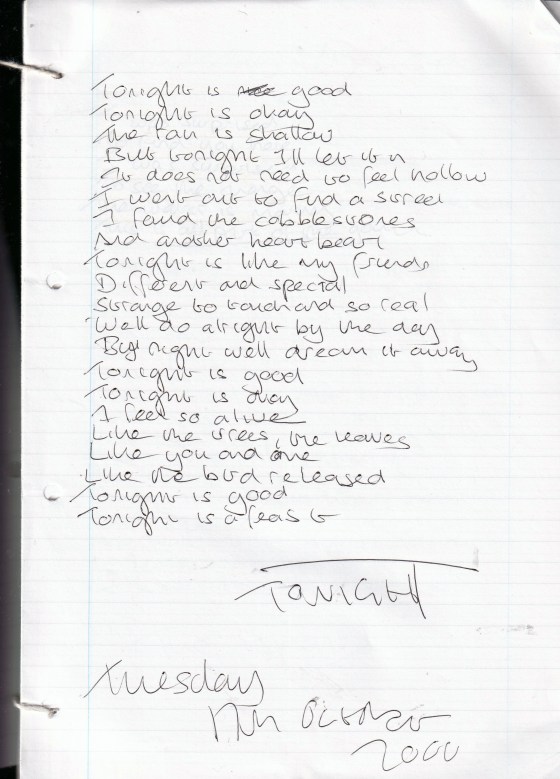 Tonight is good
Tonight is okay
The rain is shallow
But tonight I'll let it in
It does not need to feel hollow
I went out to find a street
I found the cobblestones
And another heart beat
Tonight is like my friends
Different and special
Strange to touch and so real
We'll do alright by the day
By night we'll dream it away
Tonight is good
Tonight is okay
I feel so alive
Like the trees, the leaves
Like you and me
Like the bird released
Tonight is good
Tonight is a feast
TONIGHT
Tuesday
17th October
2000